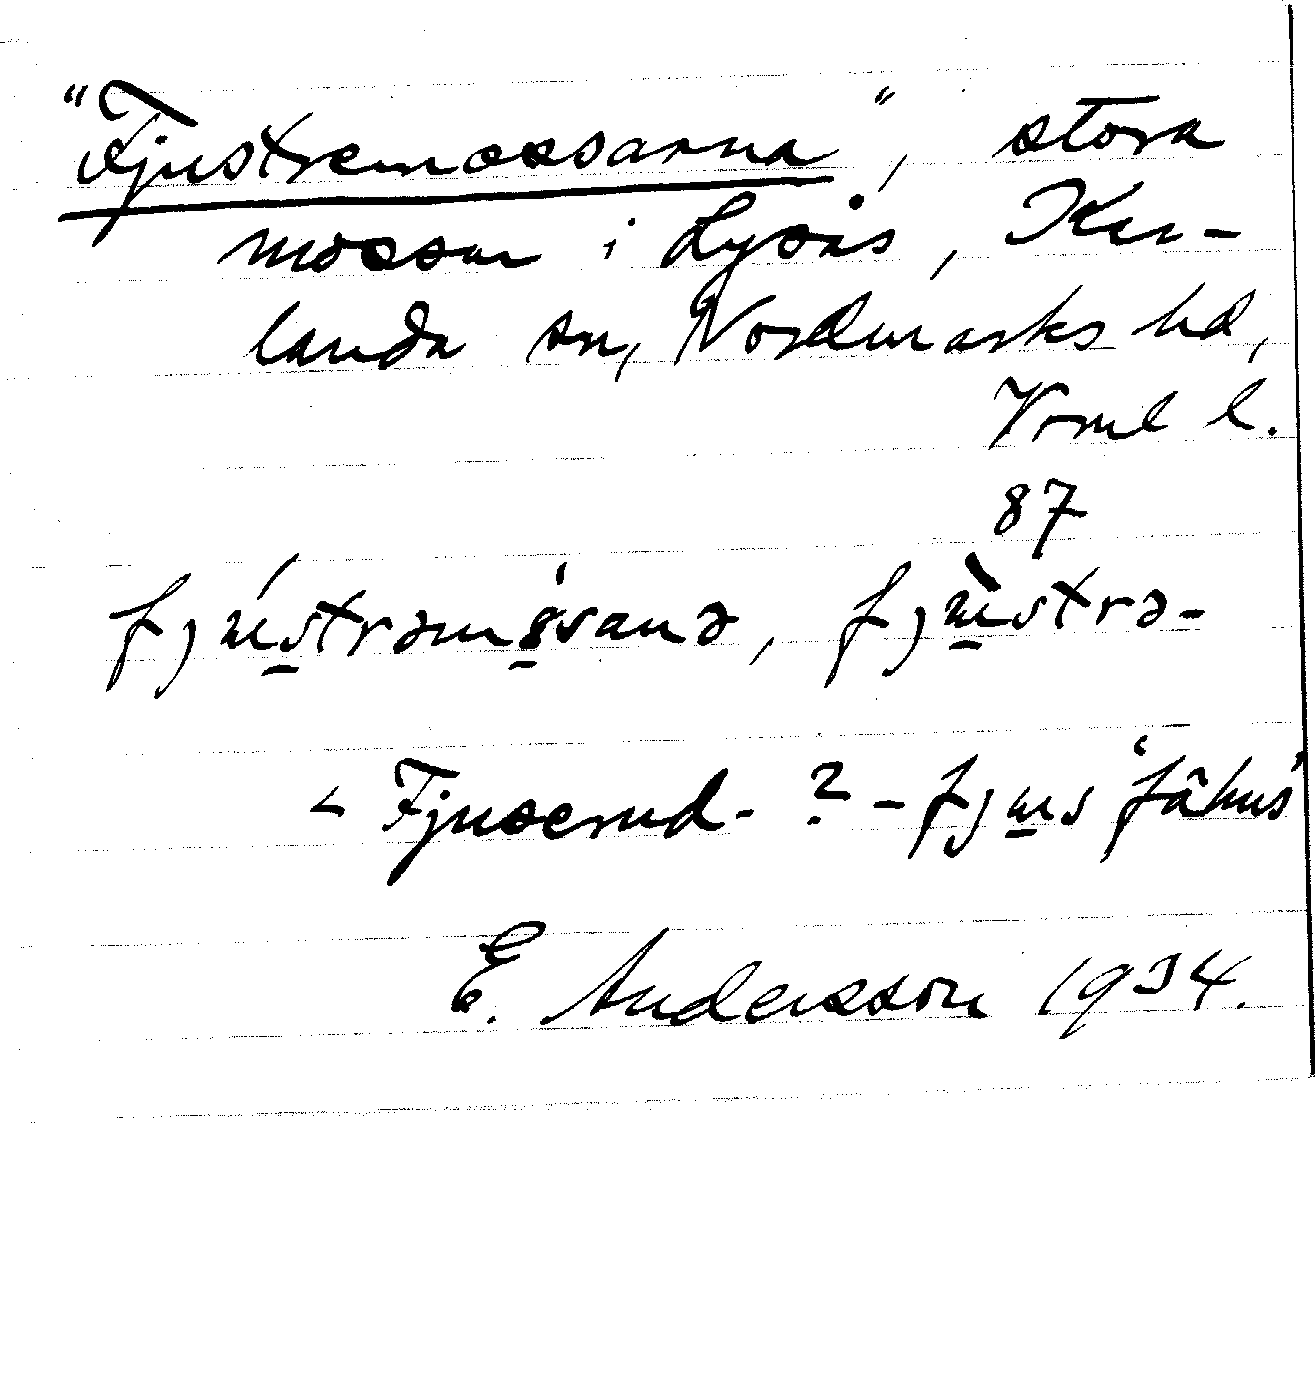 "Fjustremossarna", stora
mossar i Lysås, Kar-
landa sn, Nordmarks hd,
Vrml l.
87
fjústrəmo̱sana, fju̱strə-
< Fjuserud- ? - fju̱s 'fähus'
E. Andersson 1934.